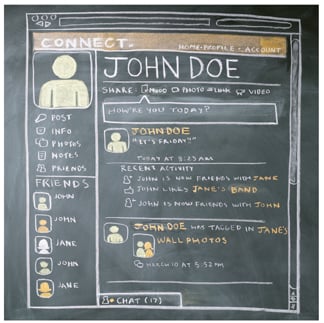 CONNECT.
HOME · PROFILE · ACCOUNT
JOHN DOE
SHARE: MOOD PHOTO LINK VIDEO
HOW'RE YOU TODAY?
POST
INFO
PHOTOS
NOTES
FRIENDS
FRIENDS
JOHN
JOHN
JANE
JOHN
JANE
JOHN DOE
"IT'S FRIDAY"
TODAY AT 8:23 AM
RECENT ACTIVITY
JOHN IS NOW FRIENDS WITH JANE
JOHN LIKES JANE'S BAND
JOHN IS NOW FRIENDS WITH JOHN
JOHN DOE WAS TAGGED IN JANE'S
WALL PHOTOS
MARCH 10 AT 5:52 PM
CHAT (17)